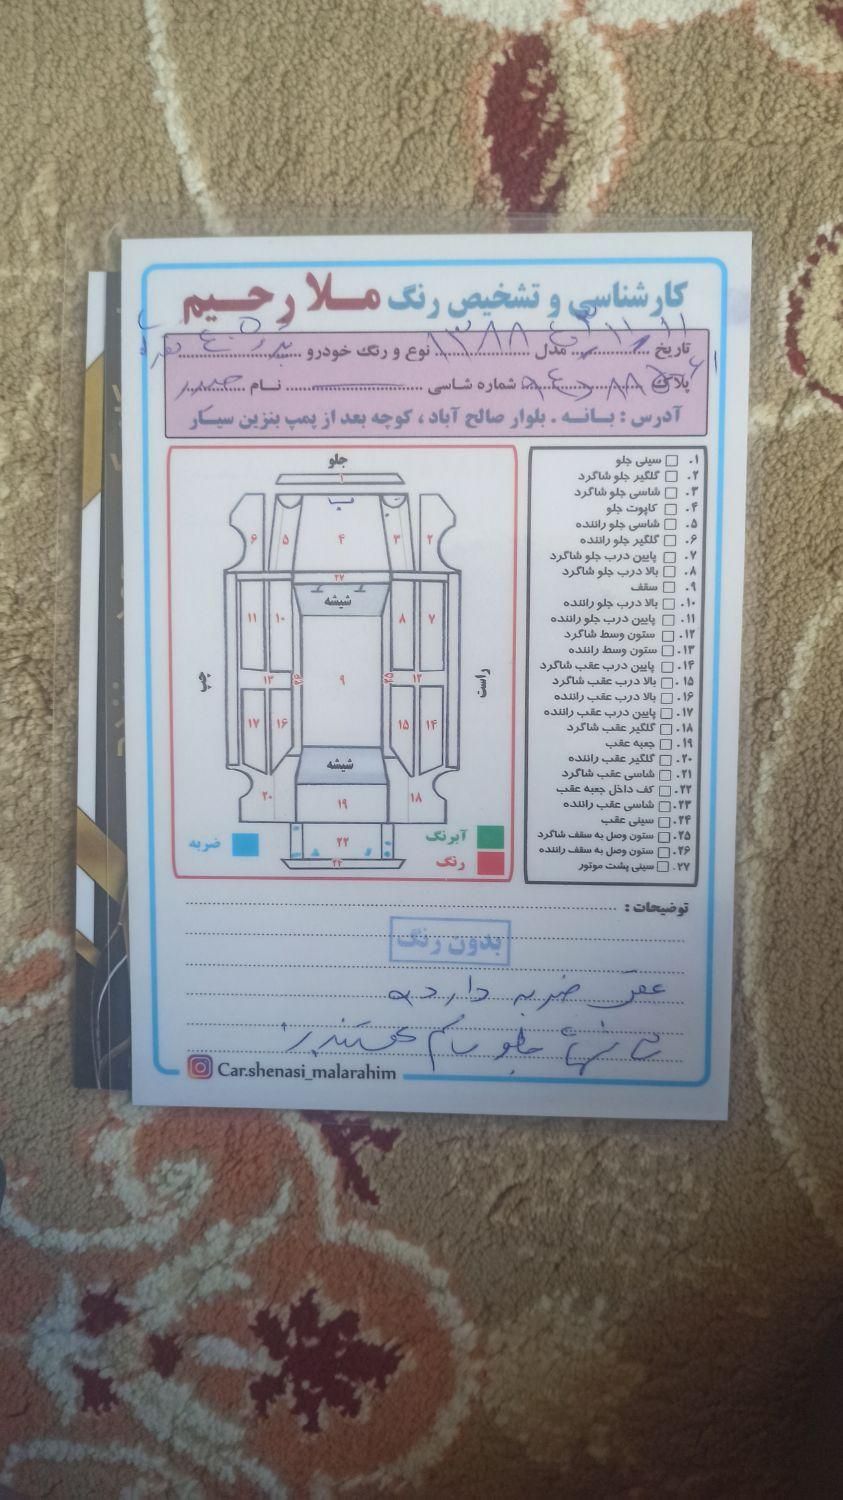 کارشناسی و تشخیص رنگ ملا رحیم
تاریخ ............ مدل ۱۳۸۸ نوع و رنگ خودرو پژو ۴۰۵ نقره‌ای
پلاک ............ شماره شاسی ............ نـام ............
آدرس : بـانـه . بلوار صالح آباد ، کوچه بعد از پمپ بنزین سیـار
۱. سینی جلو
۲. گلگیر جلو شاگرد
۳. شاسی جلو شاگرد
۴. کاپوت جلو
۵. شاسی جلو راننده
۶. گلگیر جلو راننده
۷. پایین درب جلو شاگرد
۸. بالا درب جلو شاگرد
۹. سقف
۱۰. بالا درب جلو راننده
۱۱. پایین درب جلو راننده
۱۲. ستون وسط شاگرد
۱۳. ستون وسط راننده
۱۴. پایین درب عقب شاگرد
۱۵. بالا درب عقب شاگرد
۱۶. بالا درب عقب راننده
۱۷. پایین درب عقب راننده
۱۸. گلگیر عقب شاگرد
۱۹. جعبه عقب
۲۰. گلگیر عقب راننده
۲۱. شاسی عقب شاگرد
۲۲. کف داخل جعبه عقب
۲۳. شاسی عقب راننده
۲۴. سینی عقب
۲۵. ستون وصل به سقف شاگرد
۲۶. ستون وصل به سقف راننده
۲۷. سینی پشت موتور
جلو
۱
۲ ۳ ۴ ۵ ۶
۲۷
شیشه
۷ ۸ ۱۰ ۱۱
راست
۱۲ ۲۵ ۹ ۲۶ ۱۳
چپ
۱۴ ۱۵ ۱۶ ۱۷
شیشه
۱۸ ۱۹ ۲۰
۲۲
۲۴
آبرنگ
رنگ
ضربه
توضیحات :
بدون رنگ
عقب ضربه دارد
جلو سالم هستند
Car.shenasi_malarahim